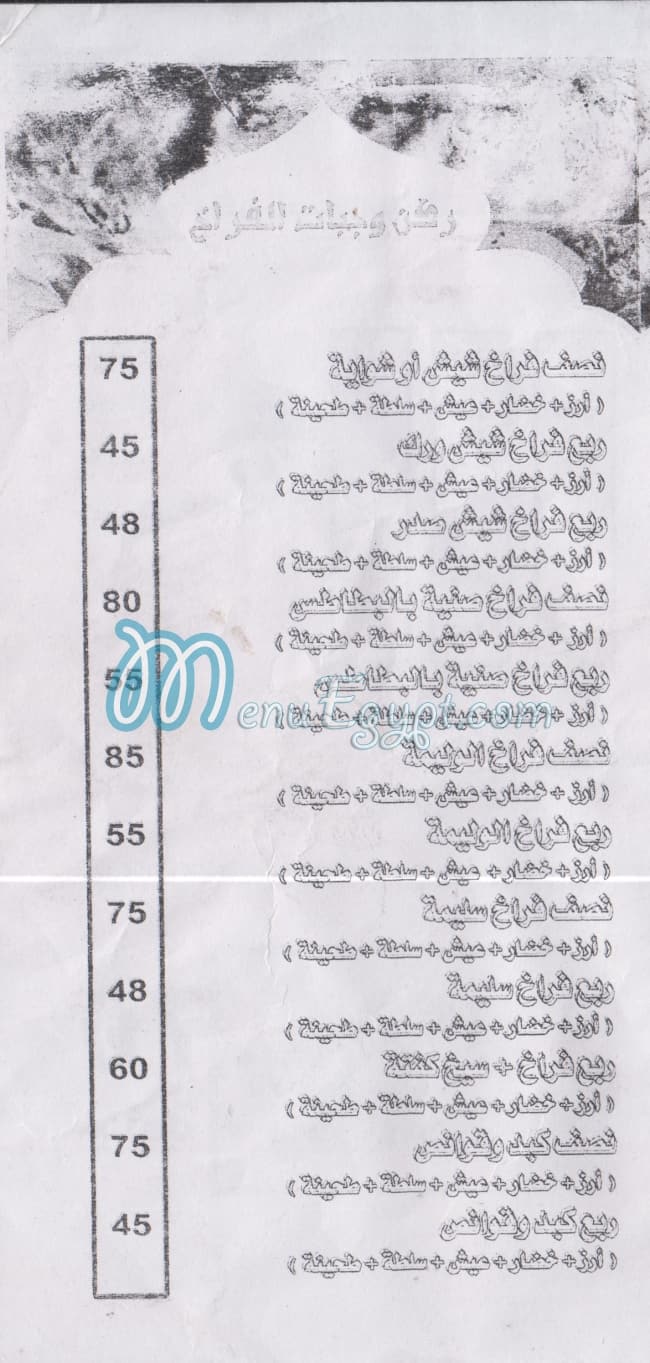 ركن وجبات الفراخ
نصف فراخ شيش أو شواية 75
( أرز + خضار + عيش + سلطة + طحينة )
ربع فراخ شيش ورك 45
( أرز + خضار + عيش + سلطة + طحينة )
ربع فراخ شيش صدر 48
( أرز + خضار + عيش + سلطة + طحينة )
نصف فراخ صنية بالبطاطس 80
( أرز + خضار + عيش + سلطة + طحينة )
ربع فراخ صنية بالبطاطس 55
MenuEgypt.com
( أرز + خضار + عيش + سلطة + طحينة )
نصف فراخ الوليمة 85
( أرز + خضار + عيش + سلطة + طحينة )
ربع فراخ الوليمة 55
( أرز + خضار + عيش + سلطة + طحينة )
نصف فراخ سليمة 75
( أرز + خضار + عيش + سلطة + طحينة )
ربع فراخ سليمة 48
( أرز + خضار + عيش + سلطة + طحينة )
ربع فراخ + سيخ كفتة 60
( أرز + خضار + عيش + سلطة + طحينة )
نصف كبد وقوانص 75
( أرز + خضار + عيش + سلطة + طحينة )
ربع كبد وقوانص 45
( أرز + خضار + عيش + سلطة + طحينة )